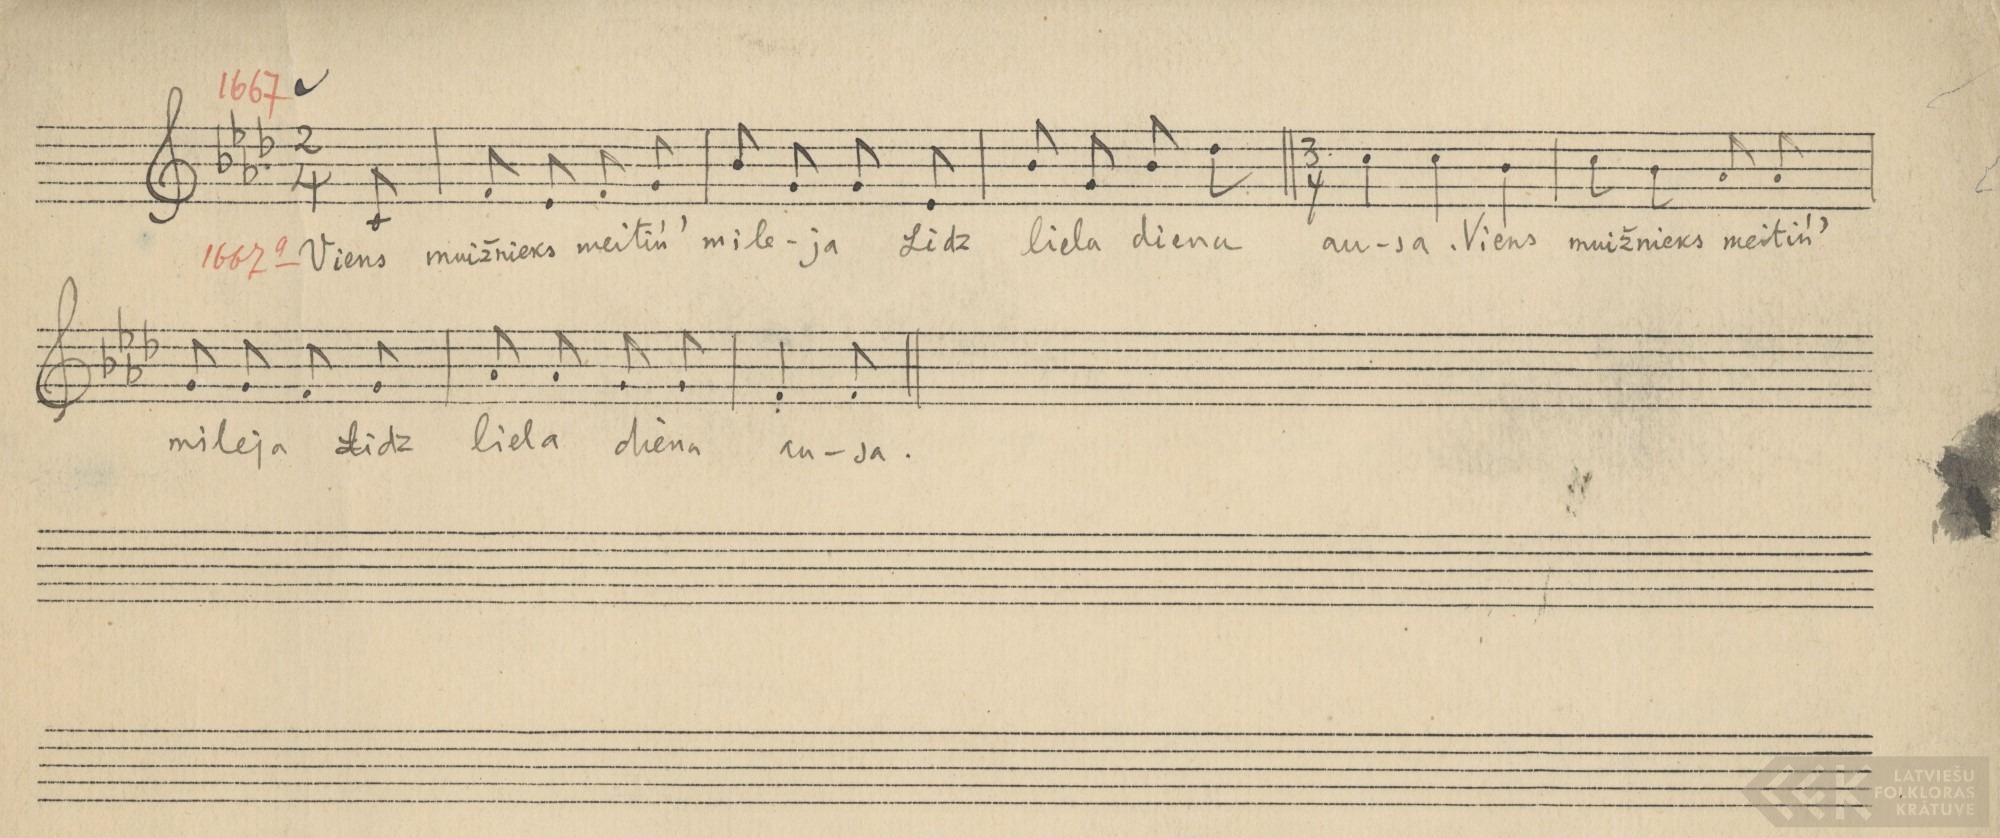 1667 ✓
2 4 3 4
1667a Viens muižnieks meitiń' mile-ja Lidz liela diena au-sa. Viens muižnieks meitiń'
mileja Lidz liela diena au-sa.
LATVIEŠU
FOLKLORAS
KRĀTUVE